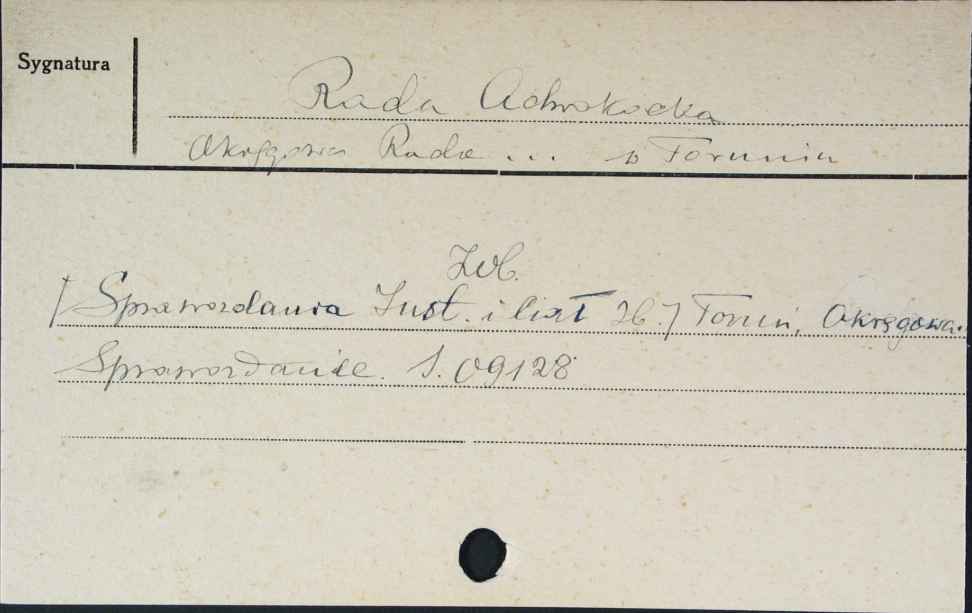 Sygnatura
Rada Adwokacka
Okręgowa Rada ... w Toruniu
Zob.
[Sprawozdania Inst. i 26.] Toruń, Okręgowa.
Sprawozdanie. S. 09128